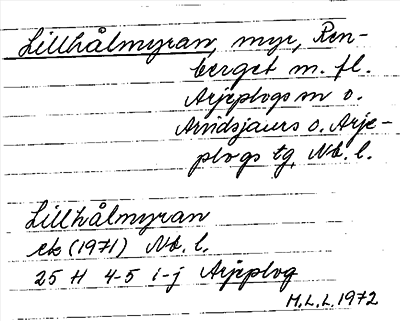 Lillhålmyran, myr, Ren-
berget m. fl.
Arjeplogs m o.
Arvidsjaurs o. Arje-
plogs tg, Nb. l.
Lillhålmyran
ek (1971) Nb. l.
25 H 4-5 i-j Arjeplog
M.L.L. 1972